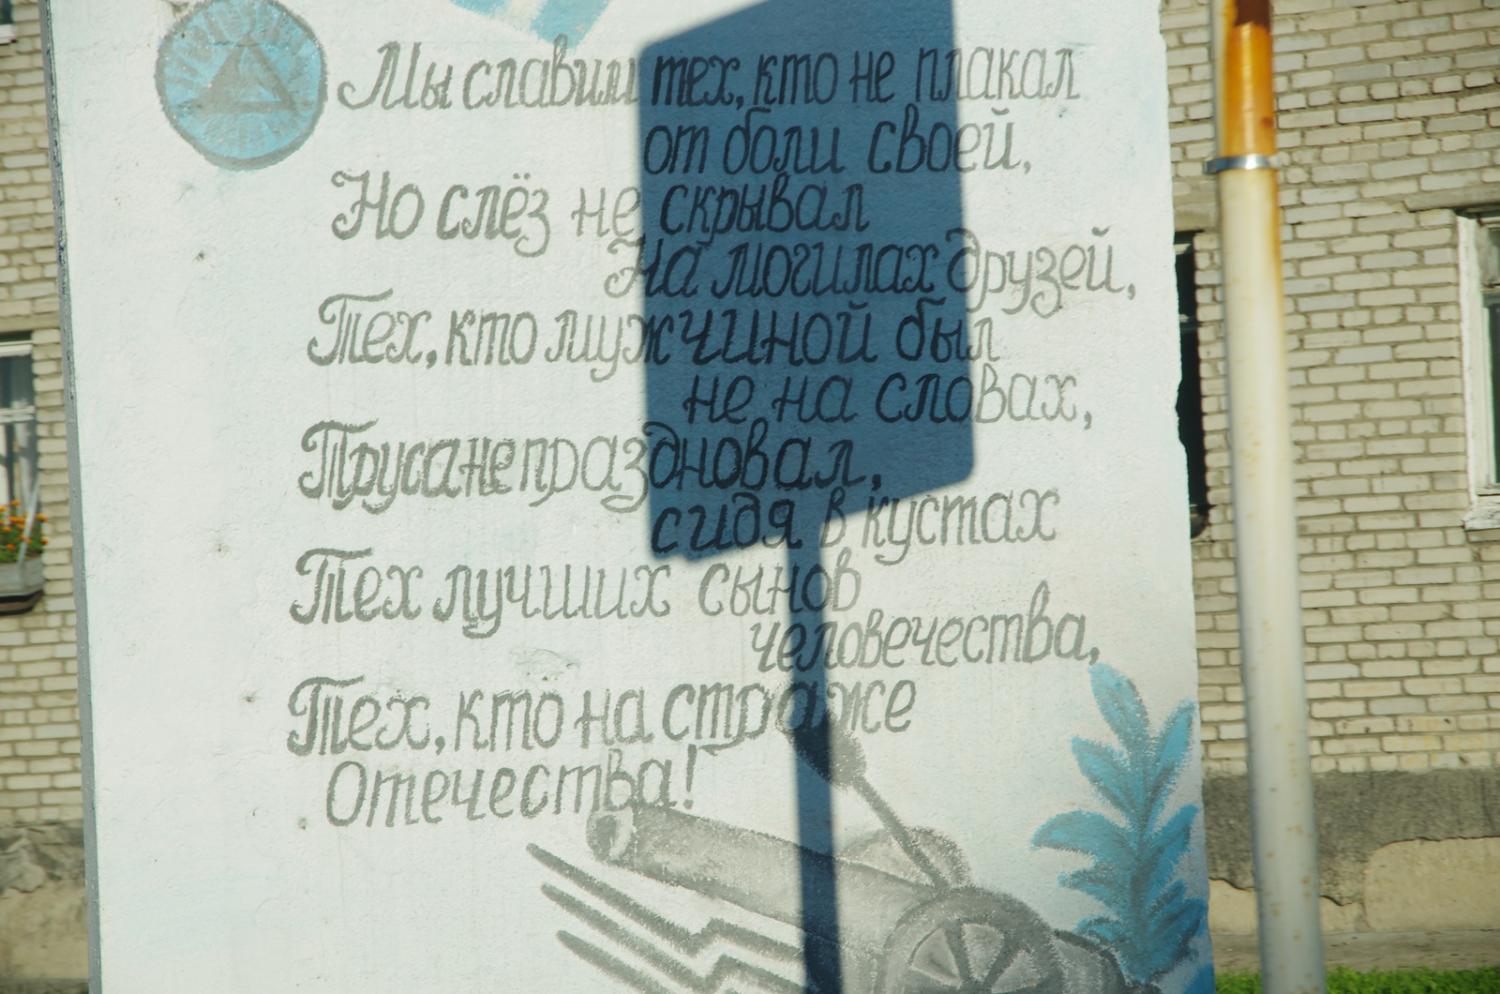 Мы славим тех, кто не плакал
от боли своей,
Но слёз не скрывал
На могилах друзей,
Тех, кто мужчиной был
не на словах,
Труса не праздновал,
сидя в кустах
Тех лучших сынов
человечества,
Тех, кто на страже
Отечества!